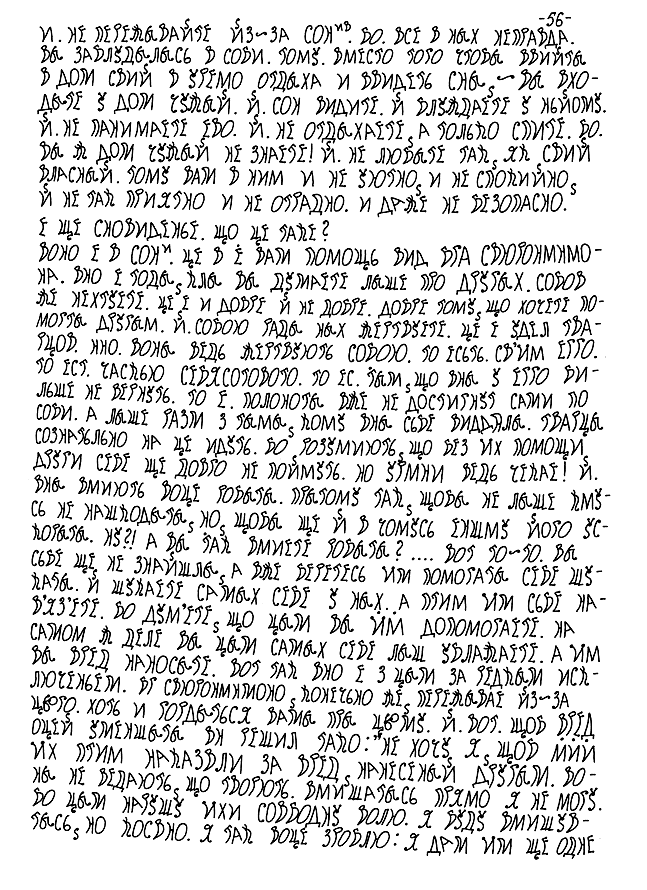 -56-
И. НЕ ПЕРЕЖИВАЙТЕ ЙЗ~ЗА СОНИВ. БО. ВСЕ В НИХ НЕПРАВДА.
ВИ ЗАБЛУДИЛИСЬ В СОБИ. ТОМУ. ВМЕСТО ТОГО ЧТОБИ ВВИЙТИ
В ДОМ СВИЙ В ВРЕМО ОТДИХА И ВВИДЕТЬ СНИ, ~ ВИ ВХО-
ДИТЕ У ДОМ ЧУЖИЙ. Й. СОН ВИДИТЕ. Й БЛУЖДАЕТЕ У НЬЙОМУ.
Й. НЕ ПАНИМАЕТЕ ЕВО. Й. НЕ ОТДИХАЕТЕ, А ТОЛЬКО СПИТЕ. БО.
ВИ Ж ДОМ ЧУЖИЙ НЕ ЗНАЕТЕ! Й. НЕ ЛЮБИТЕ ТАК, ЯК СВИЙ
ВЛАСНИЙ. ТОМУ ВАМ В НИМ И НЕ УЮТНО, И НЕ СПОКИЙНО,
Й НЕ ТАК ПРИЯТНО И НЕ ОТРАДНО. И ДАЖЕ НЕ БЕЗОПАСНО.
Е ЩЕ СНОВИДЕНЬЕ. ЩО ЦЕ ТАКЕ?
ВОНО Е В СОНИ. ЦЕ В Е ВАМ ПОМОЩЬ ВИД
НА. ВНО Е ТОДИ, КЛИ ВИ ДУМАЕТЕ ЛИШЕ ПРО ДРУГИХ. СОБОВ
ЖЕ НЕХТУЕТЕ. ЦЕ, Е И ДОБРЕ Й НЕ ДОБРЕ. ДОБРЕ ТОМУ, ЩО ХОЧЕТЕ ПО-
МОГТИ ДРУГИМ. Й. СОБОЮ РАДИ НИХ ЖЕРТВУЕТЕ. ЦЕ Е УДЕЛ ТВА-
РЦОВ. ННО. ВОНИ ВЕДЬ ЖЕРТВУЮТЬ СОБОЮ. ТО ЕСТЬ. СВ'ИМ ЕГГО.
ТО ЕСТ. ЧАСТЬЮ СЕБЯСОТОВОГО. ТО ЕС. ТИМ, ЩО ВНИ У ЕГГО БИ-
ЛЬШЕ НЕ ВЕРНУТЬ. ТО Е. ПОЛОНОТИ ВЖЕ НЕ ДОСТИГНУТ САМИ ПО
СОБИ. А ЛИШЕ РАЗМ З ТИМИ, КОМУ ВНИ СЬБЕ ВИДДЯЛИ. ТВАРЦИ
СОЗНАТЬЛЬНО НА ЦЕ ИДУТЬ. БО, РОЗУМИЮТЬ, ЩО БЕЗ ИХ ПОМОЩИ,
ДРУГИ СЕБЕ ЩЕ ДОВГО НЕ ПОЙМУТЬ. НО ВРЕМНИ ВЕДЬ ЧЕКАЕ! Й.
ВНИ ВМИЮТЬ ВОЦЕ РОБИТИ. ПРИТОМУ ТАК, ЩОБИ НЕ ЛИШЕ КМУ-
СЬ НЕ НАШКОДИТИ, НО, ЩОБИ ЩЕ Й В ЧОМУСЬ ЕНШМУ ЙОГО УС-
КОРИТИ. НУ?! А ВИ ТАК ВМИЕТЕ РОБИТИ? .... ВОТ ТО~ТО. ВИ
СЬБЕ ЩЕ НЕ ЗНАЙШЛИ, А ВЖЕ БЕРЕТЕСЬ ИМ ПОМОГАТИ СЕБЕ ШУ-
КАТИ. Й ШУКАЕТЕ САМИХ СЕБЕ У НИХ. А ПТИМ ИМ СЬБЕ НА-
В'ЯЗ'ЕТЕ. БО ДУМ'ЕТЕ, ЩО ЦИМ ВИ ИМ ДОПОМОГАЕТЕ. НА
САМОМ Ж ДЕЛЕ ВИ ЦИМ САМИХ СЕБЕ ЛИШ УБЛАЖАЕТЕ. А ИМ
ВИ ВРЕД НАНОСИТЕ. ВОТ ТАК ВНО Е З ЦИМ ЗА РЕДКИМ ИСК-
ЛЮЧЕНЬЕМ. КОНЕЧЬНО ЖЕ, ПЕРЕЖИВАЕ ЙЗ~ЗА
ЦЬОГО. ХОТЬ И ГОРДИТЬСЯ ВАМИ ПРИ ЦЬОМУ. Й. ВОТ. ЩОБ ВРЕД
ОЦЕЙ УМЕНШИТИ ВН РЕШИЛ ТАКО: "НЕ ХОЧУ Я, ЩОБ МИЙ
ИХ ПТИМ НАКАЗВЛИ ЗА ВРЕД, НАНЕСЕНИЙ ДРУГИМ. ВО-
НИ НЕ ВЕДАЮТЬ, ЩО ТВОРЮТЬ. ВМИШАТИСЬ ПРЯМО Я НЕ МОГУ.
БО ЦИМ НАРУШУ ИХИ СОВВОДНУ ВОЛЮ. Я БУДУ ВМИШУВ-
ТИСЬ, НО КОСВНО. Я ТАК ВОЦЕ ЗРОБЛЮ: Я ДАМ ИМ ЩЕ ОДНЕ